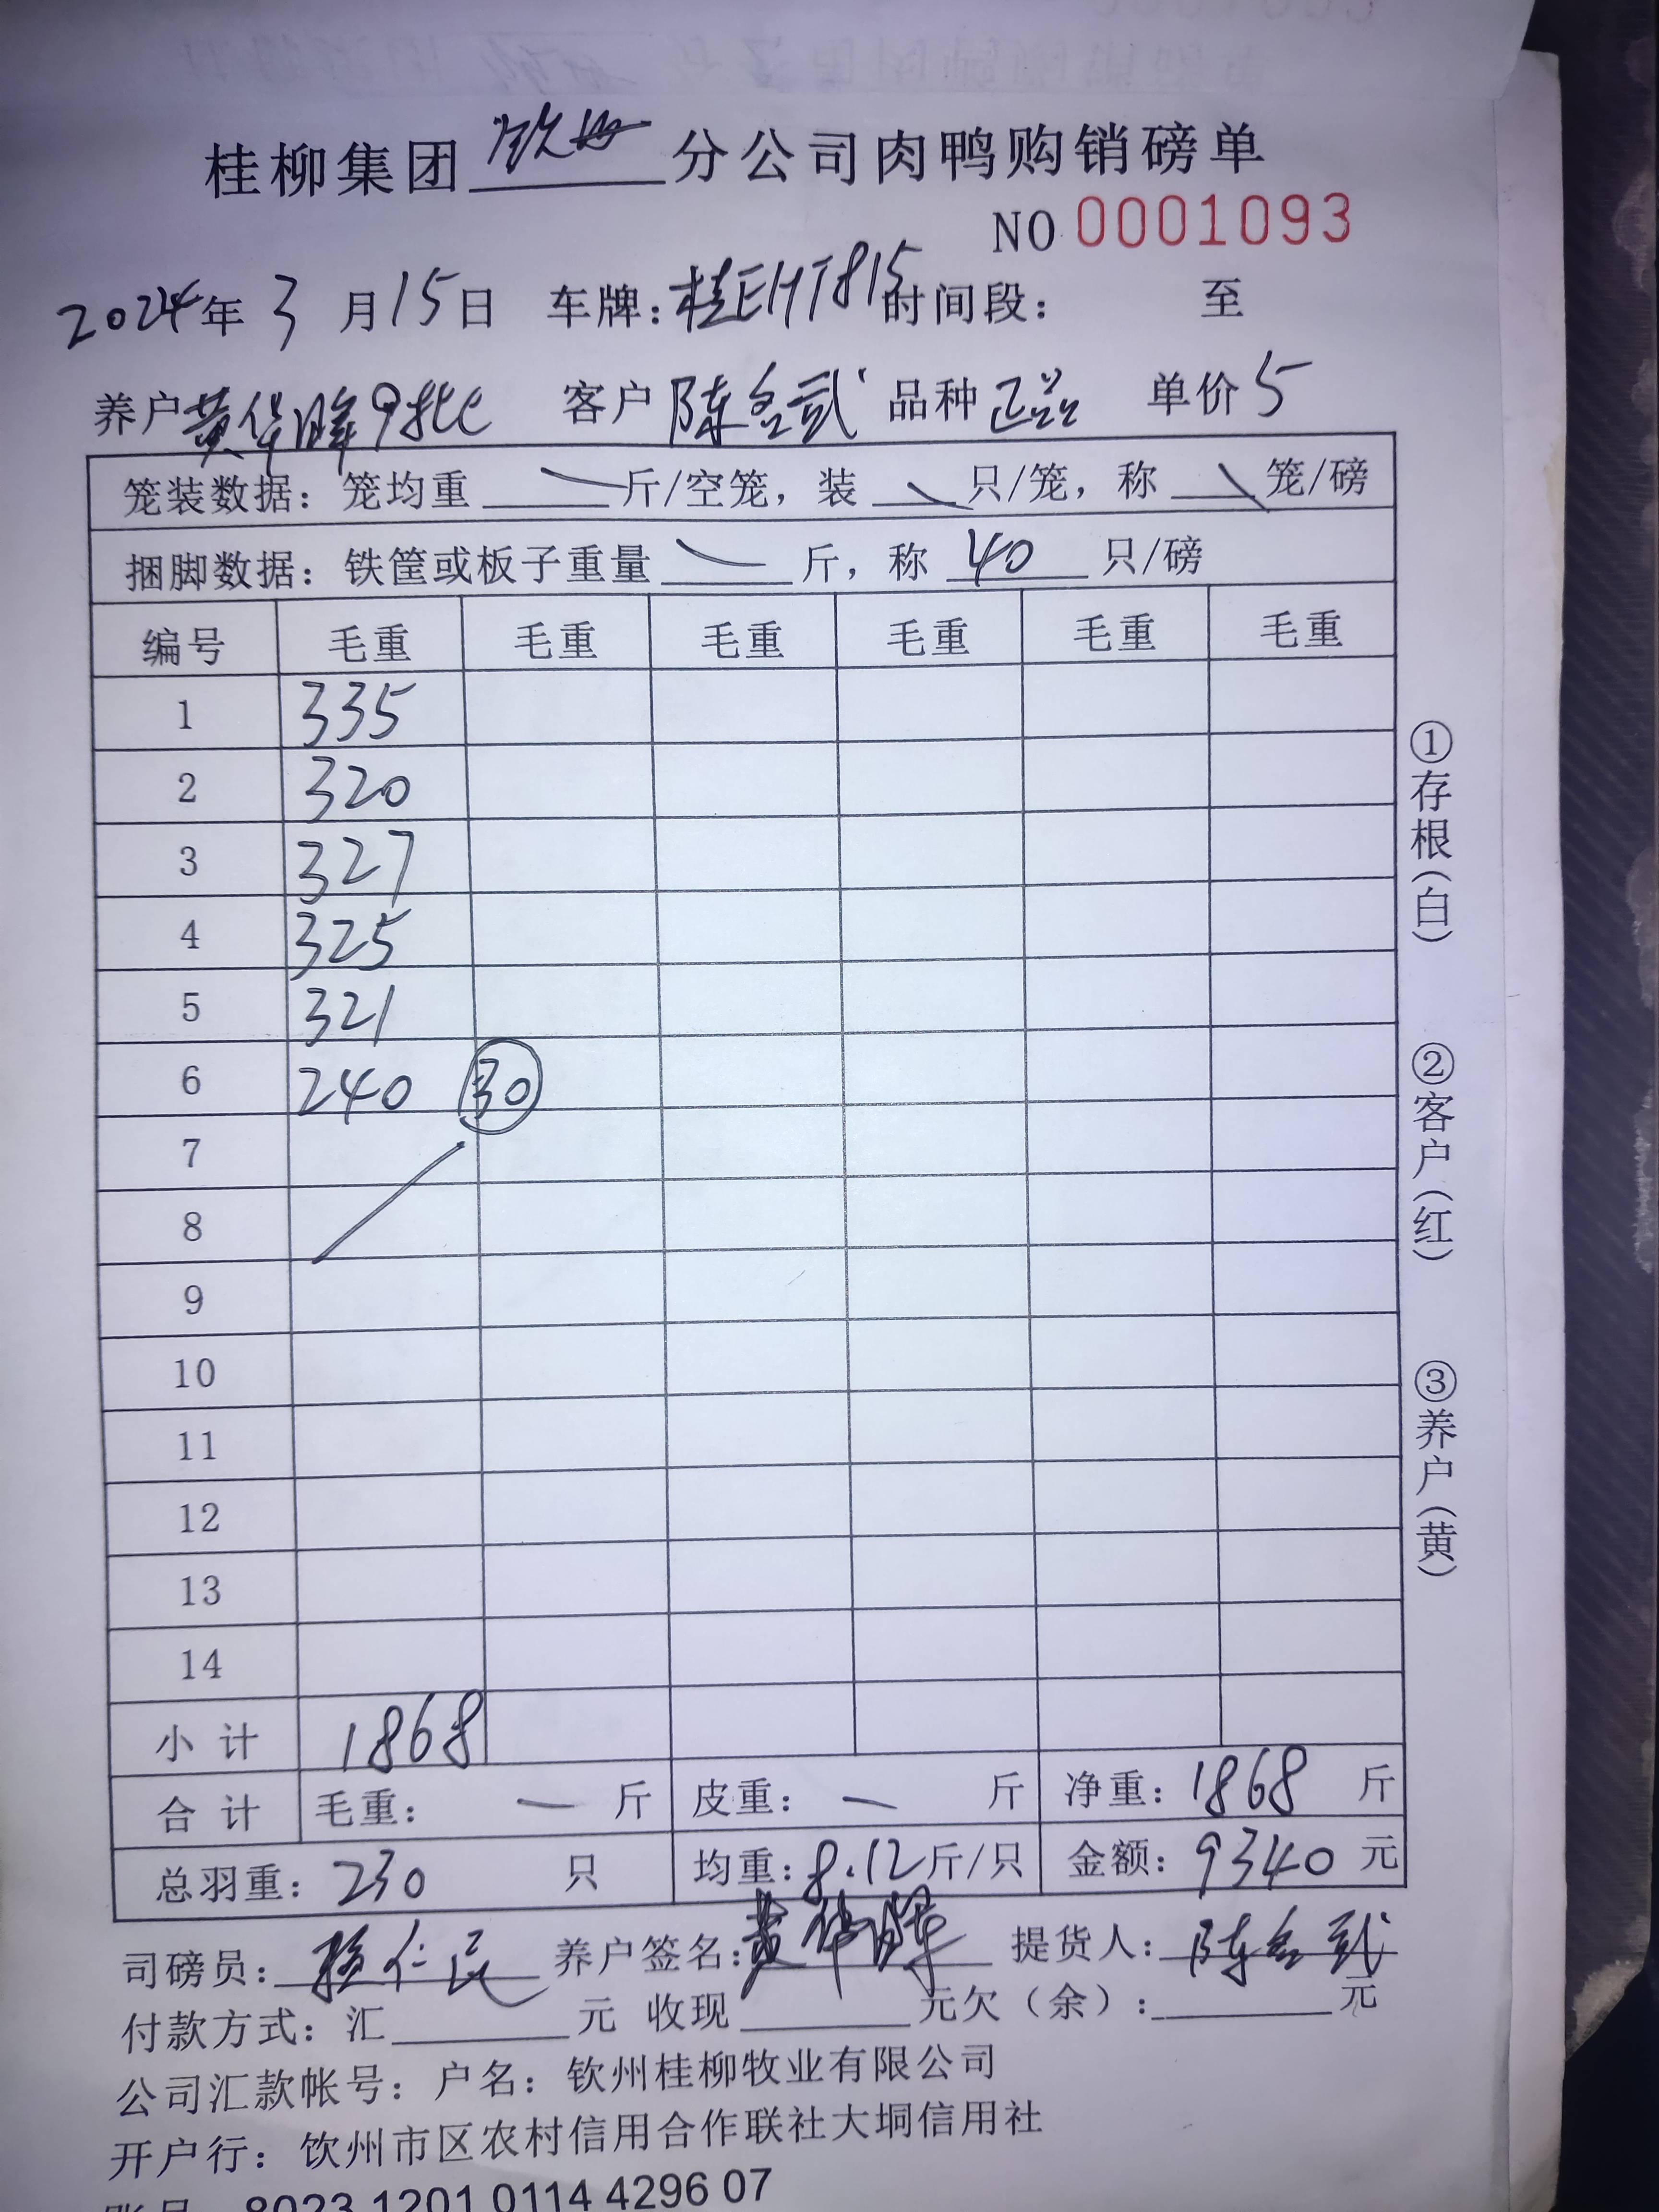 桂柳集团 钦州 分公司肉鸭购销磅单
NO 0001093
2024年 3 月 15 日 车牌：桂EHT815 时间段： 至
养户 黄华晖 9批 客户 陈名贰 品种 正品 单价 5
笼装数据：笼均重 斤/空笼，装 只/笼，称 笼/磅
捆脚数据：铁筐或板子重量 斤，称 40 只/磅
编号 毛重 毛重 毛重 毛重 毛重 毛重
1 335
2 320
3 327
4 325
5 321
6 240 30
7
8
9
10
11
12
13
14
小计 1868
合计 毛重： 一 斤 皮重： 一 斤 净重：1868 斤
总羽重：230 只 均重：8.12 斤/只 金额：9340 元
司磅员： 仁民 养户签名：黄华晖 提货人：陈名贰
付款方式：汇 元 收现 元欠（余）： 元
公司汇款帐号：户名：钦州桂柳牧业有限公司
开户行：钦州市区农村信用合作联社大垌信用社
账号 8023 1201 0114 4296 07
①存根（白）
②客户（红）
③养户（黄）